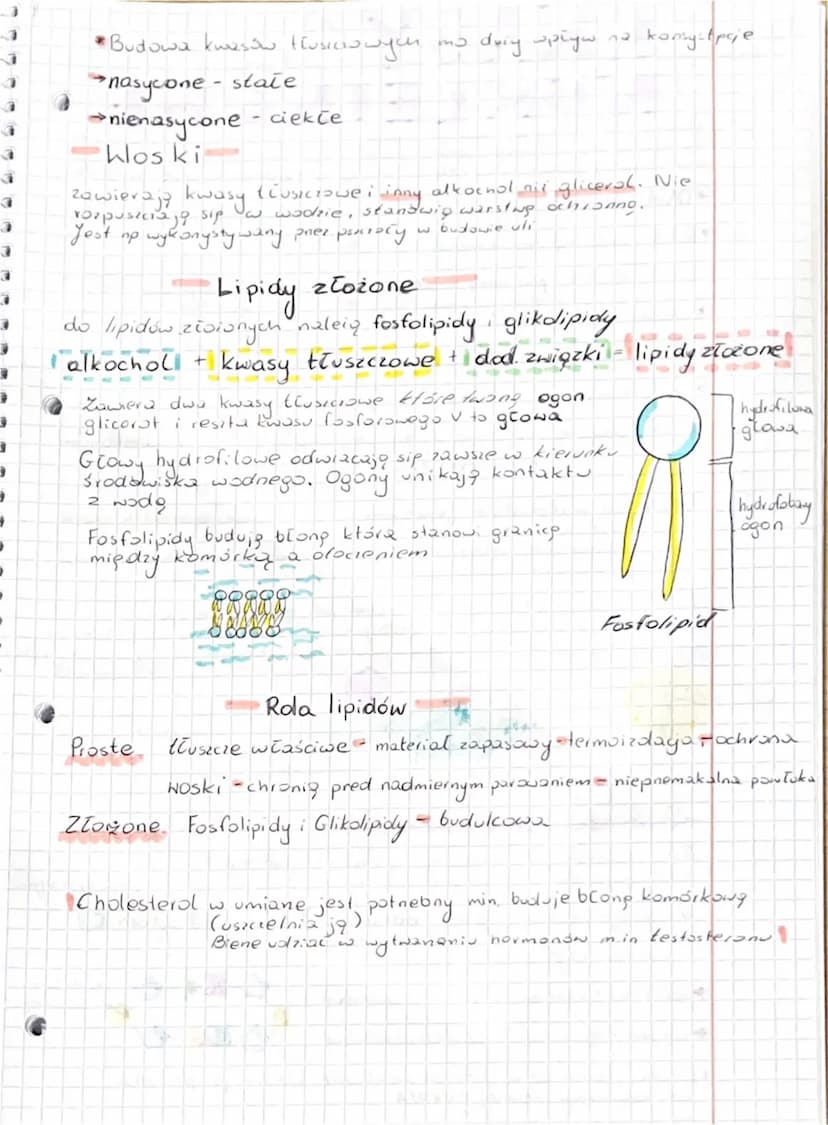 *Budowa kwasów tłuszczowych ma duży wpływ na konsystencję
→nasycone - stałe
→nienasycone - ciekłe
Woski
zawierają kwasy tłuszczowe i inny alkochol niż glicerol. Nie
rozpuszczają się w wodzie, stanowią warstwę ochronną.
Jest np wykorzystywany przez pszczoły w budowie uli
Lipidy złożone
do lipidów złożonych należą fosfolipidy i glikolipidy
alkochol + kwasy tłuszczowe + dod. związki = lipidy złożone
Zawiera dwa kwasy tłuszczowe które tworzą ogon
glicerol i reszta kwasu fosforowego V to głowa
Głowy hydrofilowe odwracają się zawsze w kierunku
środowiska wodnego. Ogony unikają kontaktu
z wodą
Fosfolipidy budują błonę która stanowi granicę
między komórką a otoczeniem
hydrofilowa
głowa
hydrofobowy
ogon
Fosfolipid
Rola lipidów
Proste. tłuszcze właściwe - materiał zapasowy - termoizolacja - ochrona
woski - chronią przed nadmiernym parowaniem - nieprzemakalna powłoka
Złożone. Fosfolipidy i Glikolipidy - budulcowa
!Cholesterol w umiarze jest potrzebny min. buduje błonę komórkową
(uszczelnia ją)
Bierze udział w wytwarzaniu hormonów m.in testosteronu!